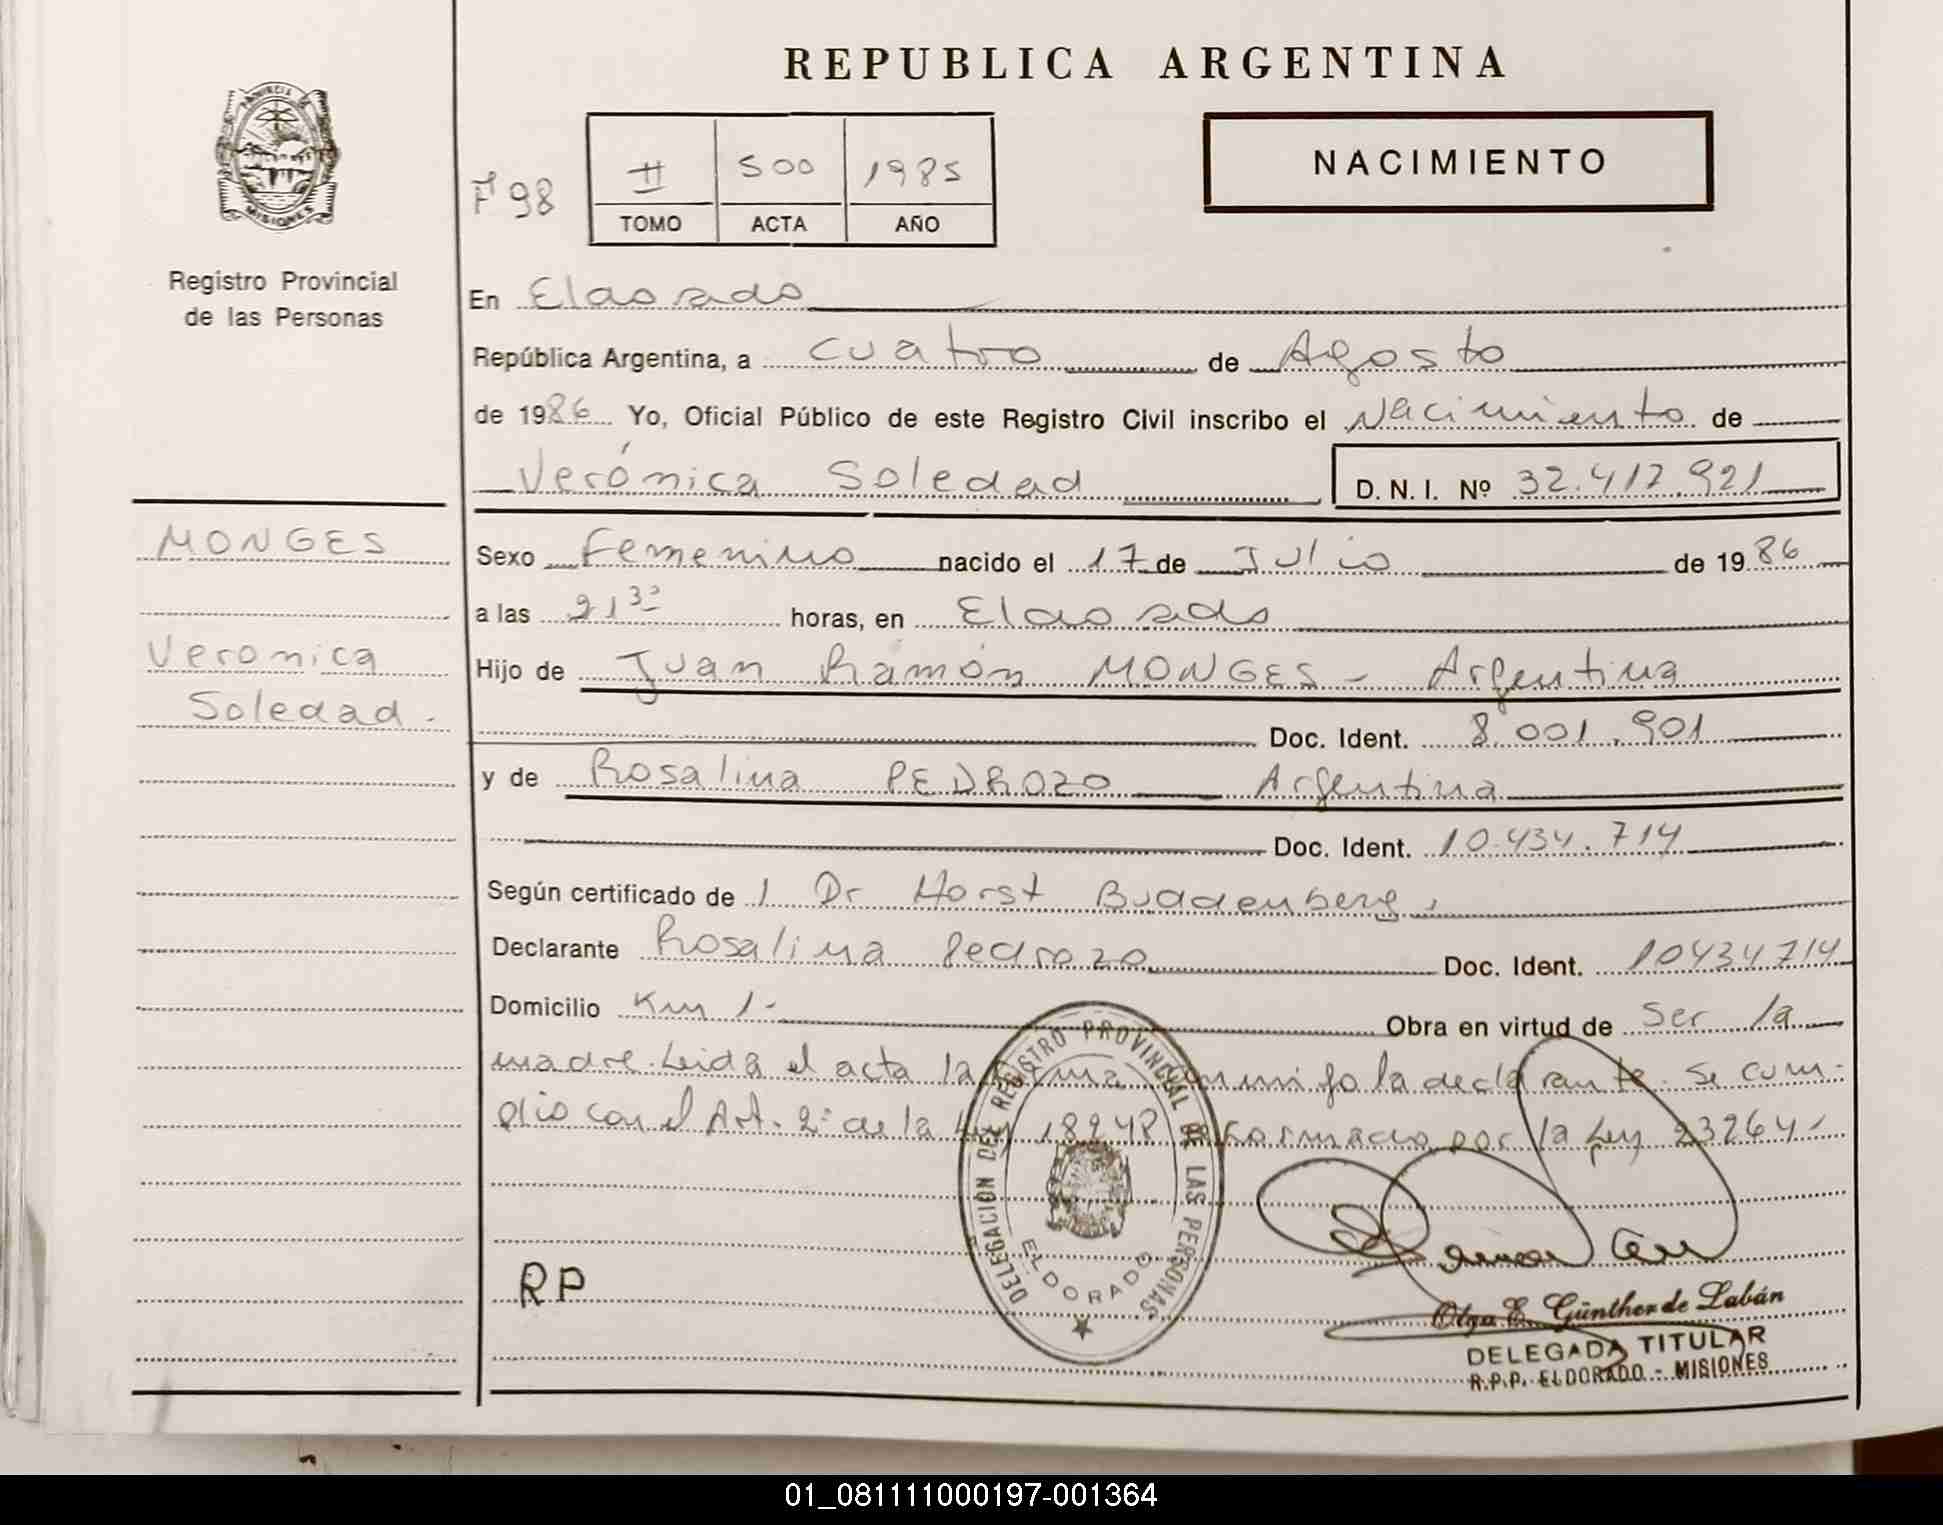 REPUBLICA ARGENTINA
PROVINCIA DE
MISIONES
Registro Provincial
de las Personas
Fº 98
II 500 1985
TOMO ACTA AÑO
NACIMIENTO
En Eldorado
República Argentina, a cuatro de Agosto
de 1986 Yo, Oficial Público de este Registro Civil inscribo el Nacimiento de
Verónica Soledad D. N. I. Nº 32.417.921
MONGES
Veronica
Soledad.
Sexo Femenino nacido el 17 de Julio de 1986
a las 21 30 horas, en Eldorado
Hijo de Juan Ramón MONGES - Argentina
Doc. Ident. 8.001.901
y de Rosalina PEDROZO Argentina
Doc. Ident. 10.434.714
Según certificado de 1 Dr Horst Buddenberg.
Declarante Rosalina Pedrozo Doc. Ident. 10434714
Domicilio Km 1- Obra en virtud de ser la
madre. Leida el acta la firma conmigo la declarante. Se cum-
plio con el Art. 2º de la Ley 18248 reformado por la Ley 23264-
RP
DELEGACION DEL REGISTRO PROVINCIAL DE LAS PERSONAS
ELDORADO
Olga E. Günther de Labán
DELEGADA TITULAR
R.P.P. ELDORADO - MISIONES
01_081111000197-001364